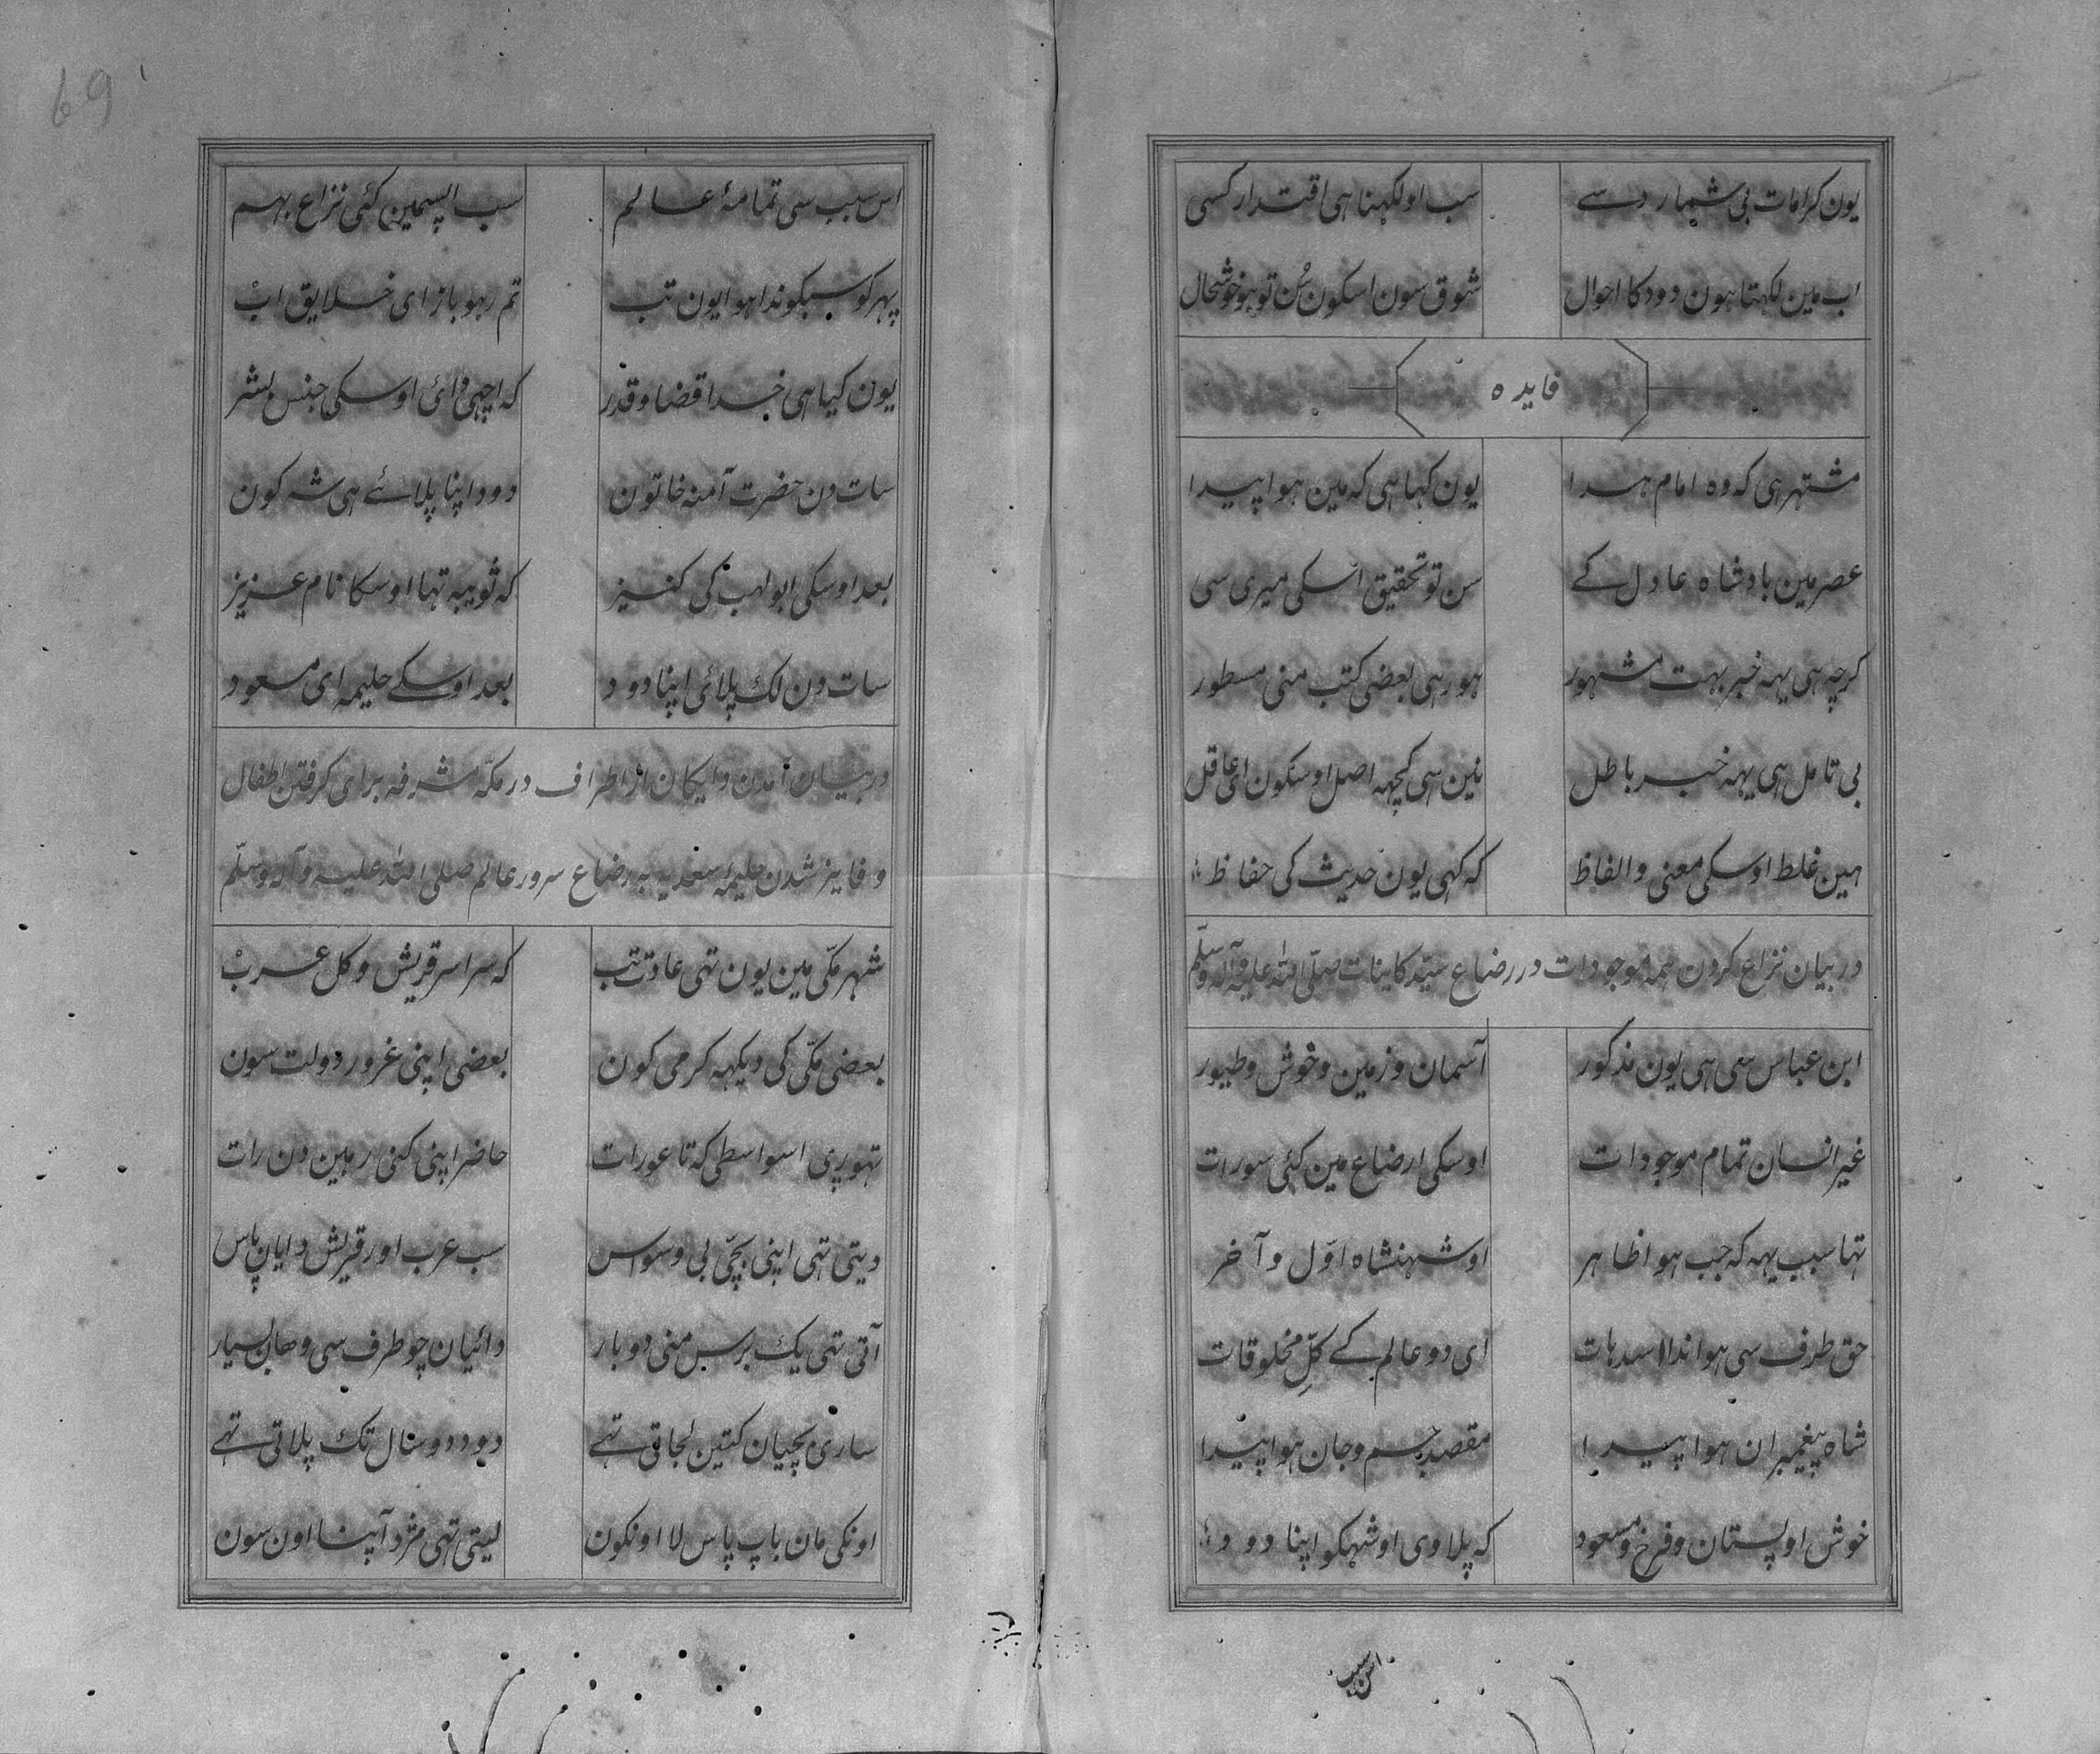 یون کرامات بی شمار دسے سب او لکہنا ہی اقتدار کسی
اب مین لکہتا ہون دود کا احوال شوق سون اسکون سُن تو ہو خوشحال
فایدہ
مشتہر ہی کہ وہ امام ہدا یون کہا ہی کہ مین ہوا پیدا
عصر مین بادشاہ عادل کے سن تو تحقیق اسکی میری سی
کرچہ ہی یہہ خبر بہت مشہور ہور ہی بعضی کتب منی مسطور
بی تامل ہی یہہ خبر باطل نین ہی کچہہ اصل اوسکون ای عاقل
ہین غلط اوسکی معنی و الفاظ کہ کہی یون حدیث کی حفاظ
در بیان نزاع کردن ہمہ موجودات در رضاع سیّد کاینات صلّی اللہ علیہ وآلہ وسلّم
ابن عباس سی ہی یون مذکور آسمان و زمین و خوش و طیور
غیر انسان تمام موجودات اوسکی ارضاع مین کئی سورات
تہا سبب یہہ کہ جب ہوا ظاہر او شہنشاہ اوّل و آخر
حق طرف سی ہوا ندا ہات ای دو عالم کے کلِّ مخلوقات
شاہ پیغمبران ہوا پیدا مقصد جسم و جان ہوا پیدا
خوش او پستان و فرخ و مسعود کہ پلاوی او شہکو اپنا دود
اس سبب
69
اس سبب سی تمامۂ عالم سب اپسمین کئی نزاع بہم
پہر کو سبکو ندا ہوا یون تب تم رہو باز ای خلایق ابْ
یون کیا ہی خدا قضا و قدر کہ اچہی دائی اوسکی جنس بشر
سات دن حضرت آمنہ خاتون دود اپنا پلائے ہی شہ کون
بعد اوسکی ابو لہب کی کنیز کہ ثویبہ تہا اوسکا نام عزیز
سات دن لک پلائی اپنا دود بعد اوسکے حلیمہ ای مسعود
در بیان آمدن دایکان از اطراف در مکّہ مشرفہ برای کرفتن اطفال
و فایز شدن حلیمہ سعدیہ بہ رضاع سرور عالم صلی اللہ علیہ وآلہ وسلّم
شہر مکّی مین یون تہی عادت تب کہ سراسر قریش و کل عربْ
بعضی مکّی کی دیکہہ کرمی کون بعضی اپنی غرور دولت سون
تہور پی اسواسطی کہ تا عورات حاضر اپنی کنی رہین دن رات
دیتی تہی اپنی بچّی بی وسواس سب عرب اور قریش دایان پاس
آتی تہی یک برس منی دو بار دائیان چو طرف سی وہان بسیار
ساری بچیان کتین لجاتی تہے دود دو سال تک پلاتی تہے
اونکی مان باپ پاس لا اونکون لیتی تہی مژد آپنا اون سون